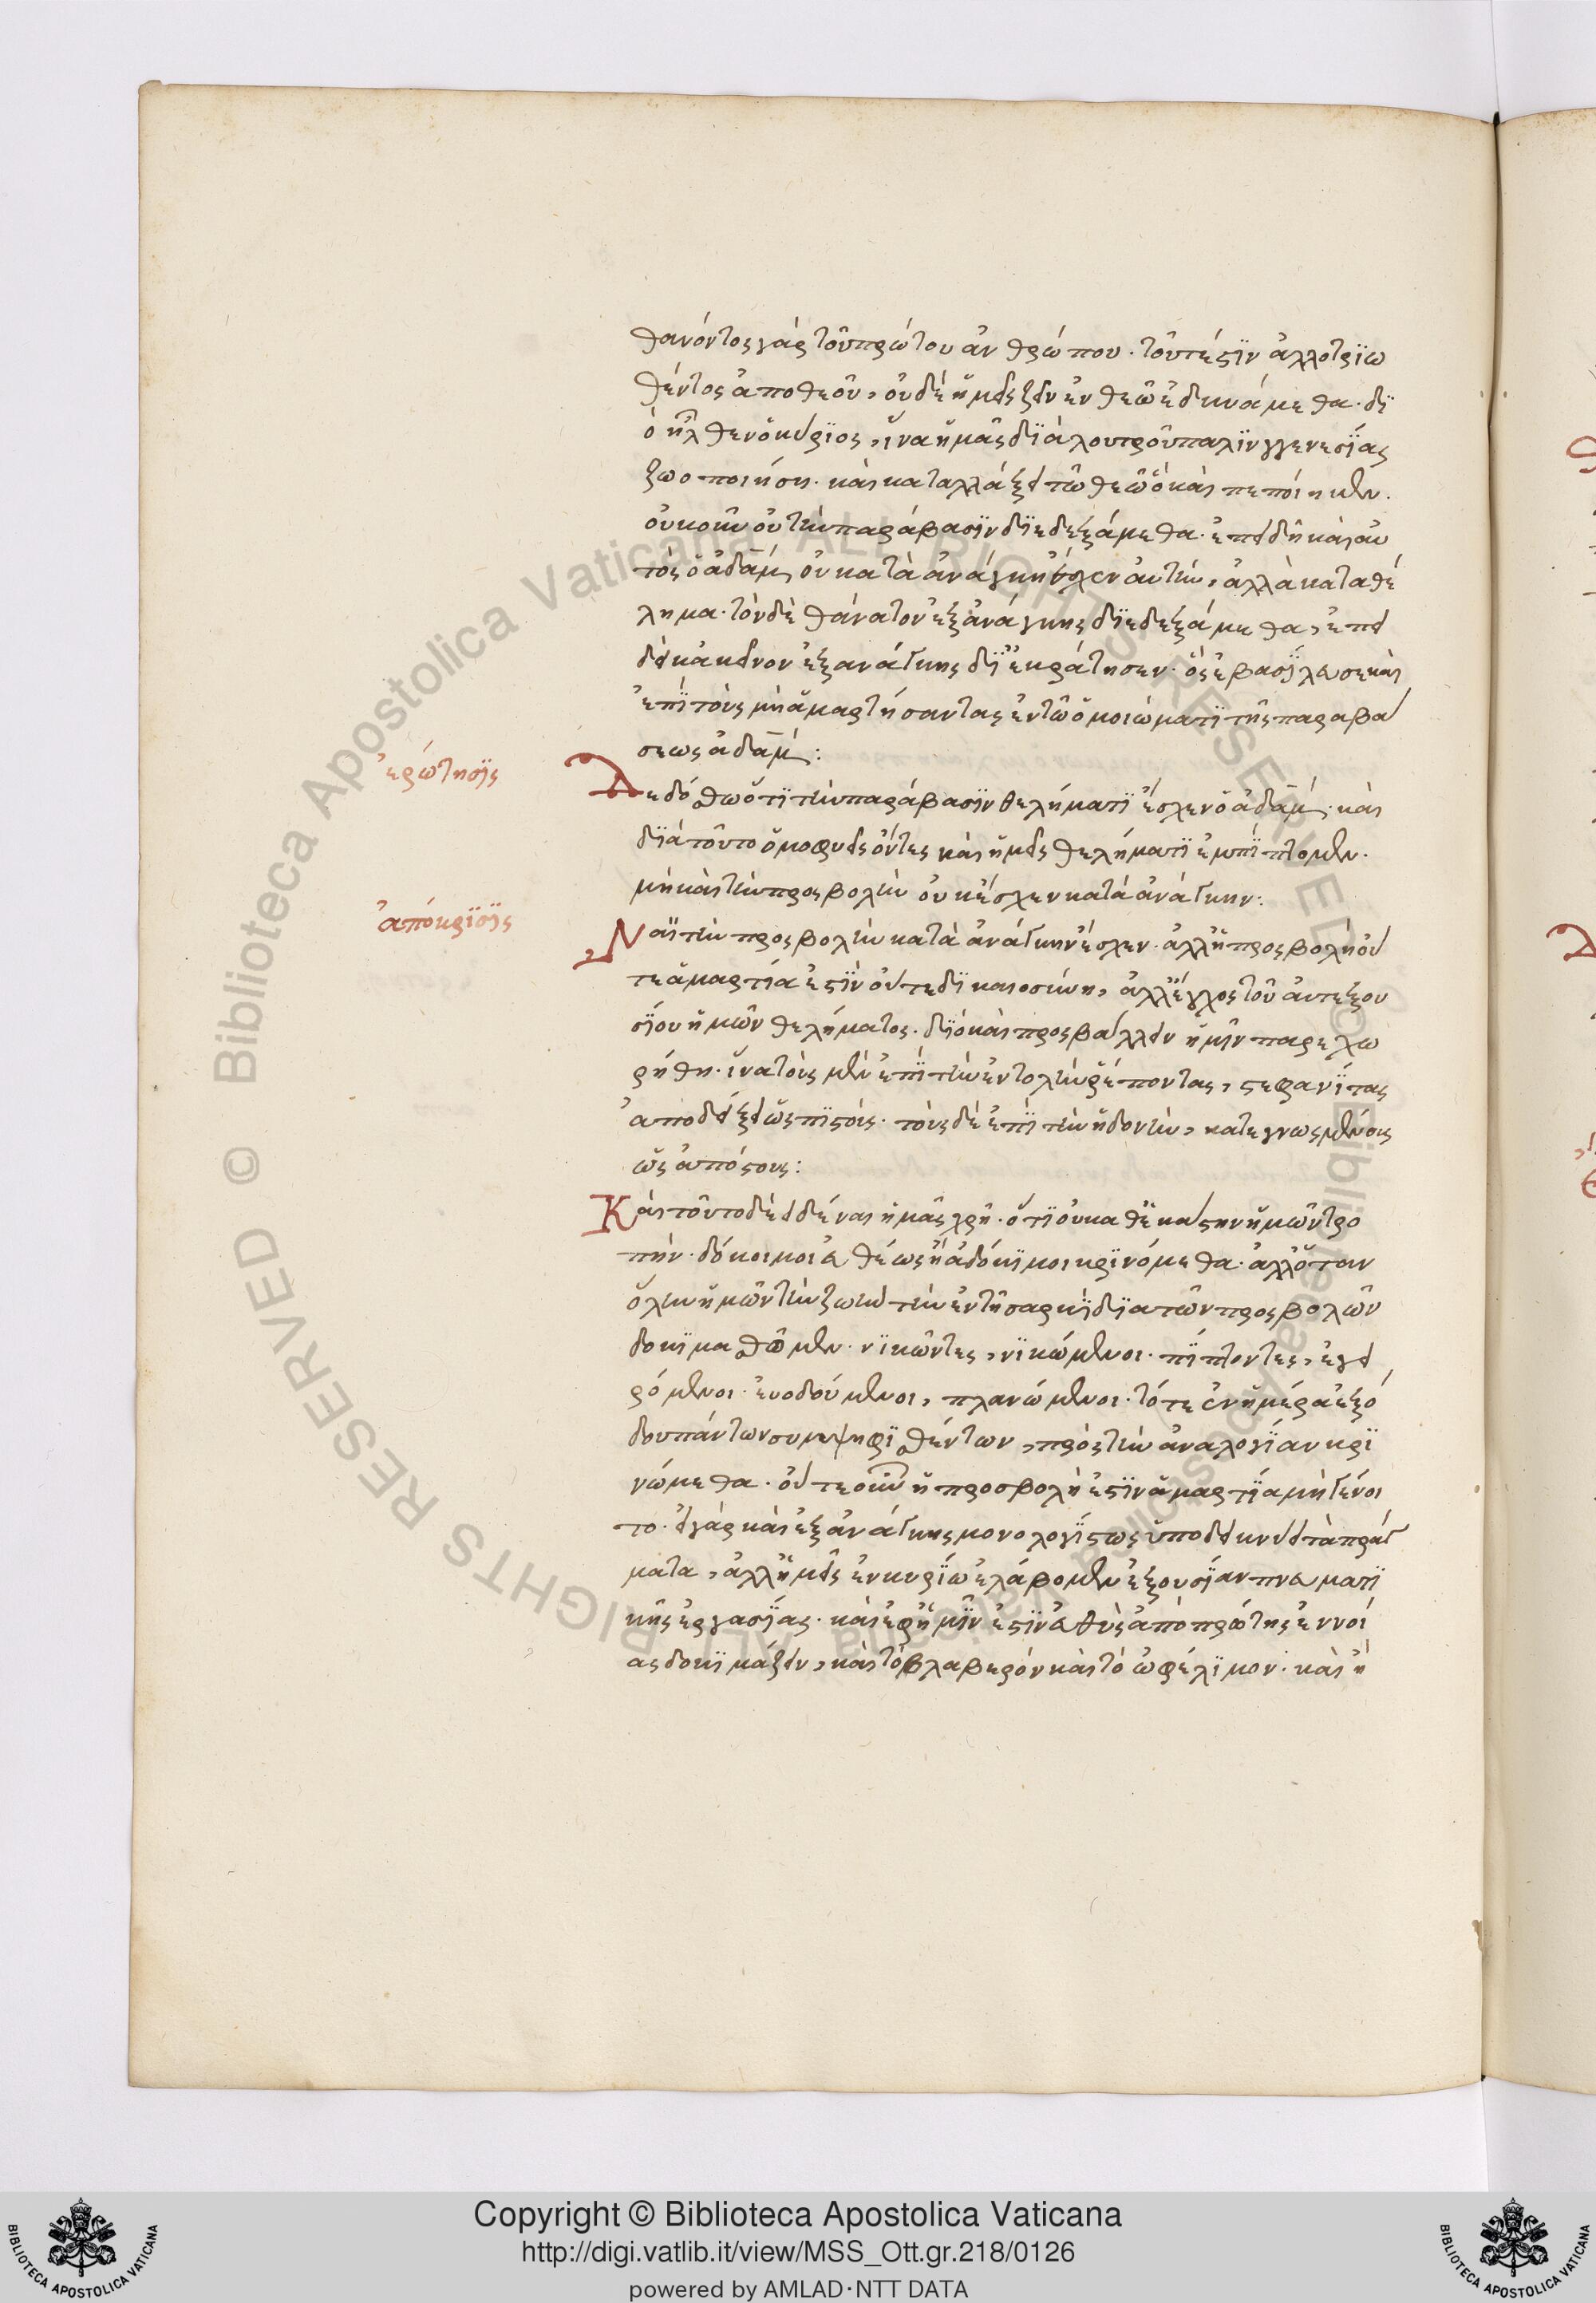 θανόντος γὰρ τοῦ πρώτου ἀνθρώπου· τουτέστιν ἀλλοτριω
θέντος ἀπο θεοῦ, οὐδὲ ἡμεῖς ζεῖν ἐν θεῶ ἐδυνάμεθα· δι
ὸ ἦλθεν ὁ κύριος, ἵνα ἡμᾶς διὰ λουτροῦ παλινγγενεσίας
ζωοποιήση· καὶ καταλλάξει τῶ θεῶ ὃ καὶ πεποίηκεν.
οὐκοῦν οὐ τὴν παράβασιν διεδεξάμεθα· ἐπειδὴ καὶ αὐ
τὸς ὁ ἀδὰμ οὐ κατὰ ἀνάγκην ἔσχεν αὐτὴν, ἀλλὰ κατα θέ
λημα· τὸν δὲ θάνατον ἐξ ἀνάγκης διεδεξάμεθα, ἐπει
δὴ κἀκεῖνον ἐξ ἀνάγκης διεκράτησεν· ὃς ἐβασίλευσε καὶ
ἐπὶ τοὺς μὴ ἁμαρτήσαντας ἐν τῶ ὁμοιώματι τῆς παραβά
σεως ἀδάμ:
ἐρώτησις
Δεδόσθω ὅτι τὴν παράβασιν θελήματι ἔσχεν ὁ ἀδάμ· καὶ
διὰ τοῦτο ὁμοφυεῖς ὄντες καὶ ἡμεῖς θελήματι ἐμπίπτομεν.
μὴ καὶ τὴν προσβολὴν οὐκ ἔσχεν κατὰ ἀνάγκην:
ἀπόκρισις
Ναὶ τὴν προσβολὴν κατὰ ἀνάγκην ἔσχεν· ἀλλ' ἡ προσβολὴ οὔ
τε ἁμαρτία ἐστὶν οὔτε δικαιοσύνη, ἀλλ' ἔλεγχος τοῦ αὐτεξου
σίου ἡμῶν θελήματος· διὸ καὶ προσβάλλειν ἡμῖν παρεχω
ρήθη· ἵνα τοὺς μὲν ἐπὶ τὴν ἐντολὴν ῥέποντας, στεφανίτας
ἀποδείξει ὡς πιστούς· τοὺς δὲ ἐπὶ τὴν ἡδονὴν, κατεγνωσμένους
ὡς ἀπίστους:
Καὶ τοῦτο δὲ εἰδέναι ἡμᾶς χρὴ· ὅτι οὐ καθ' ἑκάστην ἡμῶν τρο
πὴν· δόκιμοι εὐθέως ἢ ἀδόκιμοι κρινόμεθα· ἀλλ' ὅταν
ὅλην ἡμῶν τὴν ζωὴν τὴν ἐν τῆ σαρκὶ διὰ τῶν προσβολῶν
δοκιμασθῶμεν· νικῶντες, νικώμενοι· πίπτοντες, ἐγει
ρόμενοι· ἐυοδούμενοι, πλανώμενοι· τότε ἐν ἡμέρα ἐξό
δου πάντων συμψηφισθέντων, πρὸς τὴν ἀναλογίαν κρι
νώμεθα· οὔτε οὖν ἡ προσβολὴ ἐστὶν ἁμαρτία μὴ γένοι
το· εἰ γὰρ καὶ ἐξ ἀνάγκης μονολογίστως ὑποδεικνύει τὰ πράγ
ματα, ἀλλ' ἡμεῖς ἐν κυρίω ἐλάβομεν ἐξουσίαν πνευματι
κῆς ἐργασίας· καὶ ἐφ' ἡμῖν ἐστὶν εὐθὺς ἀπὸ πρώτης ἐννοί
ας δοκιμάζειν, καὶ τὸ βλαβερὸν καὶ τὸ ὠφέλιμον· καὶ ἢ
Copyright © Biblioteca Apostolica Vaticana
http://digi.vatlib.it/view/MSS_Ott.gr.218/0126
powered by AMLAD·NTT DATA